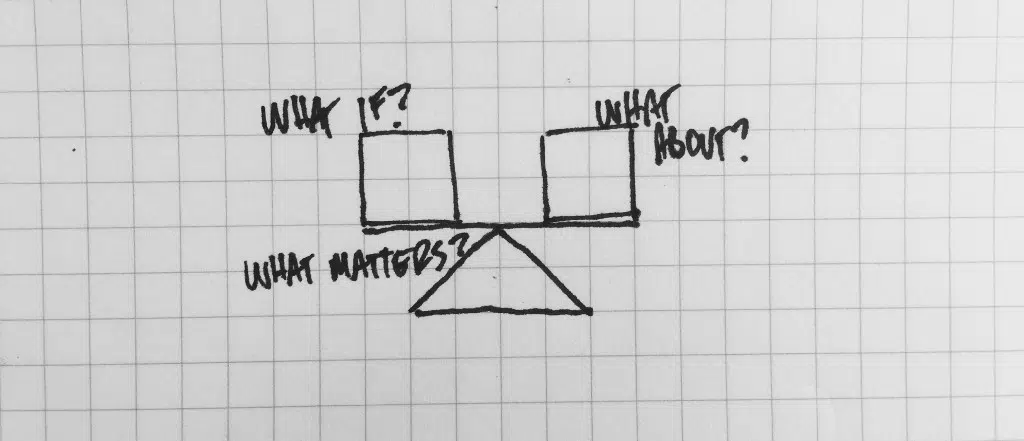 WHAT IF?
WHAT
ABOUT?
WHAT MATTERS?